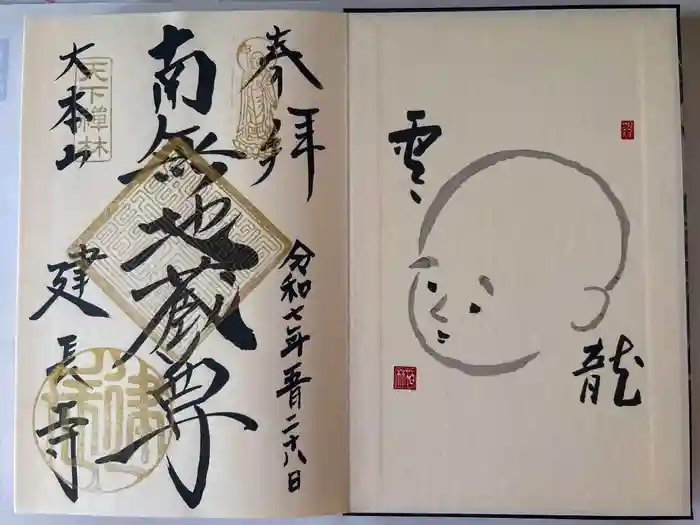 奉拝
令和七年五月二十八日
南無地蔵尊
天下禪林
大本山
建長寺
雲
龍